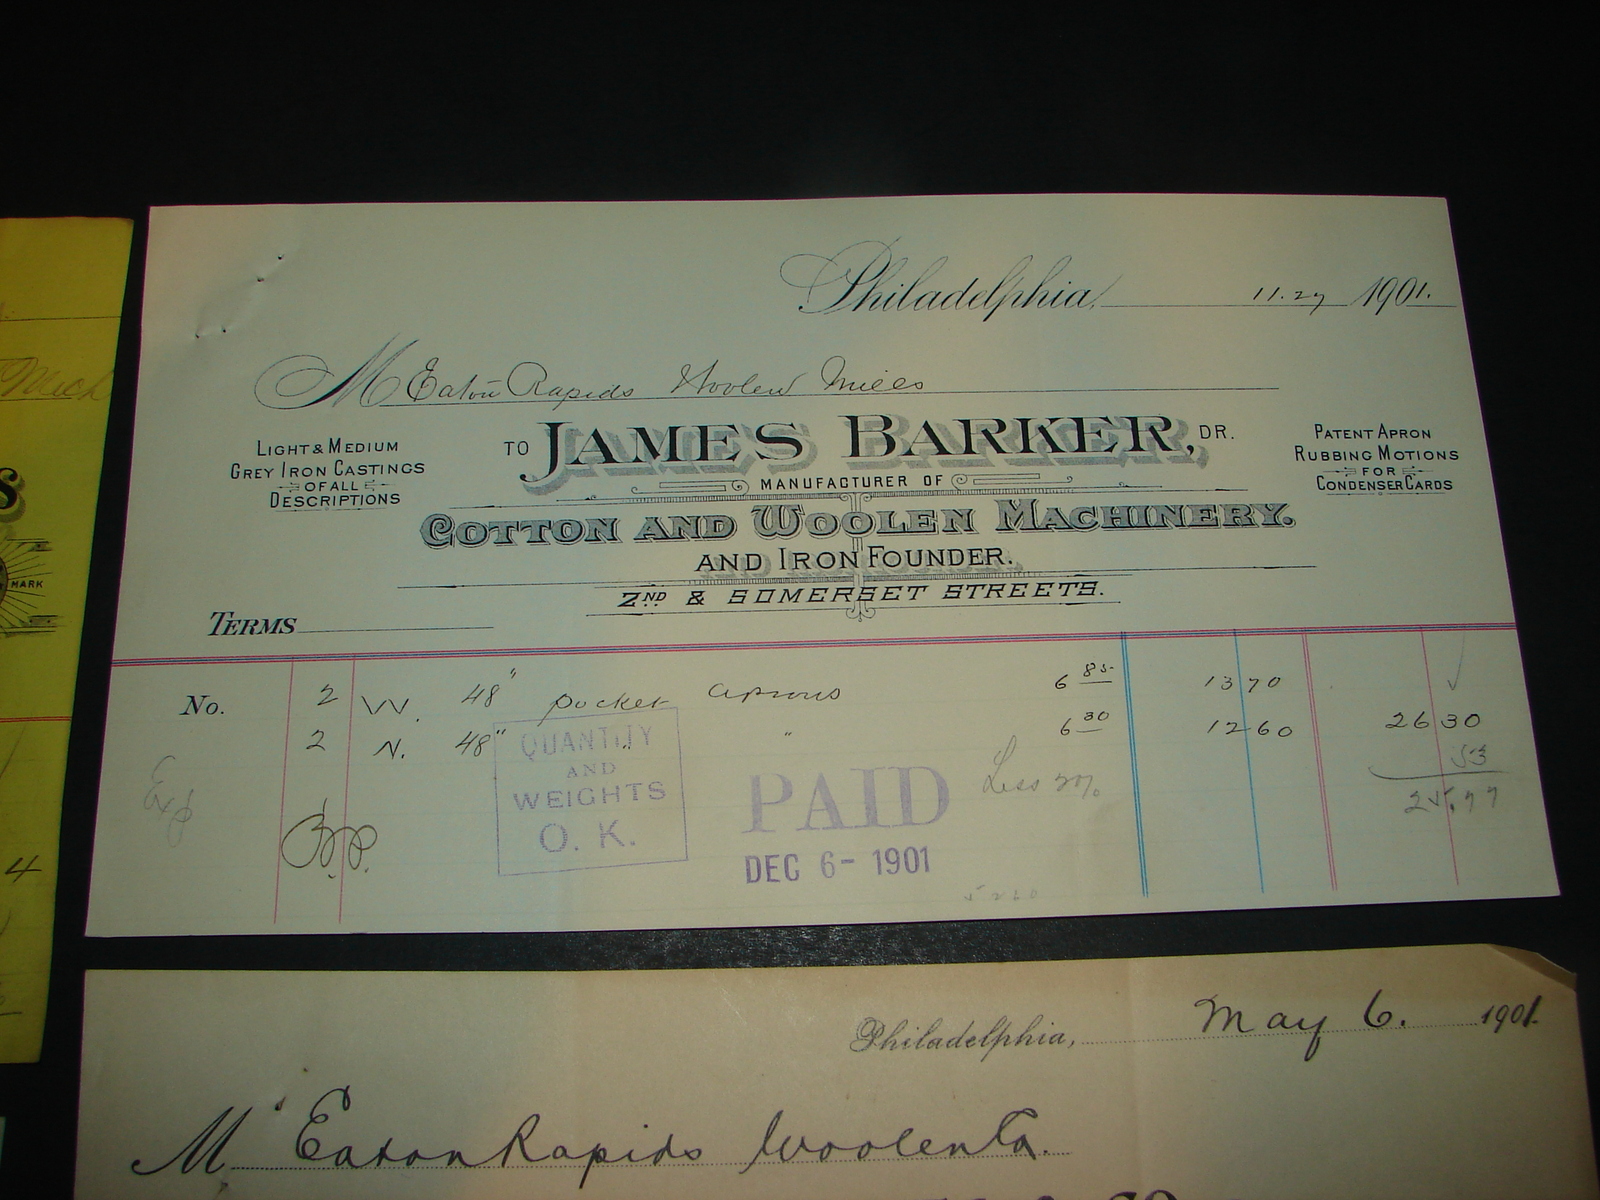 Philadelphia, 11.27 1901.
M Eaton Rapids Woolen Mills
TO JAMES BARKER, DR.
LIGHT & MEDIUM
GREY IRON CASTINGS
OF ALL
DESCRIPTIONS
PATENT APRON
RUBBING MOTIONS
FOR
CONDENSER CARDS
MANUFACTURER OF
COTTON AND WOOLEN MACHINERY.
AND IRON FOUNDER.
2ND & SOMERSET STREETS.
TERMS
No. 2 W. 48" pocket aprons 6 85 13 70
2 N. 48" " " 6 30 12 60 26 30
Less 2% 53
25.77
Exp
QUANTITY
AND
WEIGHTS
O. K.
PAID
DEC 6- 1901
Mich
S
MARK
4
Philadelphia, May 6. 1901.
M Eaton Rapids Woolen Co.